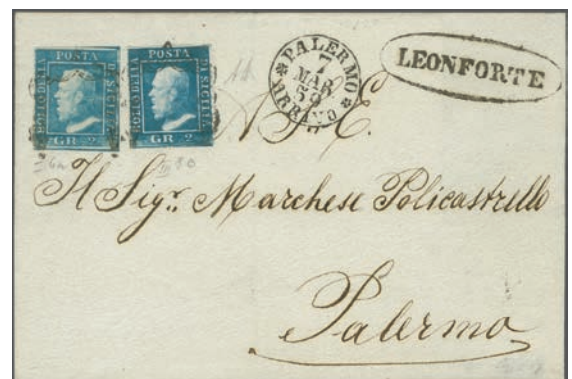 POSTA
BOLLO DELLA
DI SICILIA
GR 2
POSTA
BOLLO DELLA
DI SICILIA
GR 2
PALERMO
7
MAR
59
ARRIVO
LEONFORTE
A S. E.
Il Sigr. Marchese Policastrello
Palermo